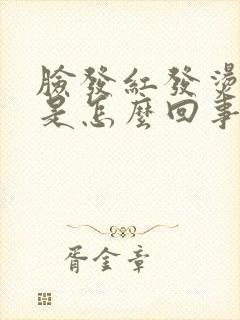 臉發紅發燙
是怎麼回事
胥金章